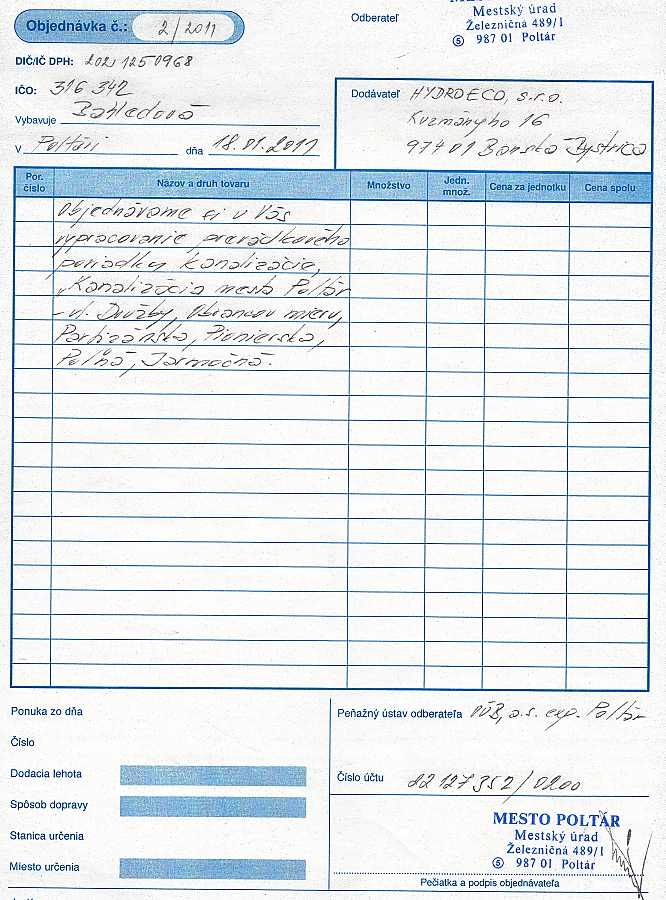 Objednávka č.: 2/2011
Odberateľ
Mestský úrad
Železničná 489/1
⑤ 987 01 Poltár
DIČ/IČ DPH: 2021250968
IČO: 316 342
Vybavuje Bahledová
V Poltári dňa 18.01.2011
Dodávateľ HYDROECO, s.r.o.
Kuzmányho 16
97401 Banská Bystrica
Por. číslo Názov a druh tovaru Množstvo Jedn. množ. Cena za jednotku Cena spolu
Objednávame si u Vás
vypracovanie prevádkového
poriadku kanalizácie,
„Kanalizácia mesta Poltár
- ul. Družby, Obrancov mieru,
Partizánska, Pionierska,
Poľná, Jarmočná.
Ponuka zo dňa
Číslo
Dodacia lehota
Spôsob dopravy
Stanica určenia
Miesto určenia
Peňažný ústav odberateľa VÚB, a.s. exp. Poltár
Číslo účtu 22127352/0200
MESTO POLTÁR
Mestský úrad
Železničná 489/1
⑤ 987 01 Poltár
Pečiatka a podpis objednávateľa